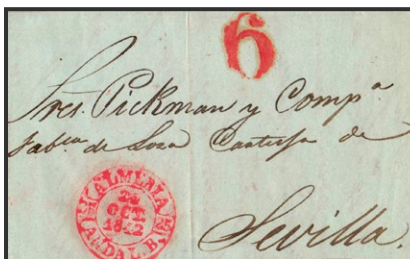 6
Sres. Pickman y Compª
Fabca de Loza Cartuja de
Sevilla.
ALMERIA
OCT.
1842
ANDAL. B.